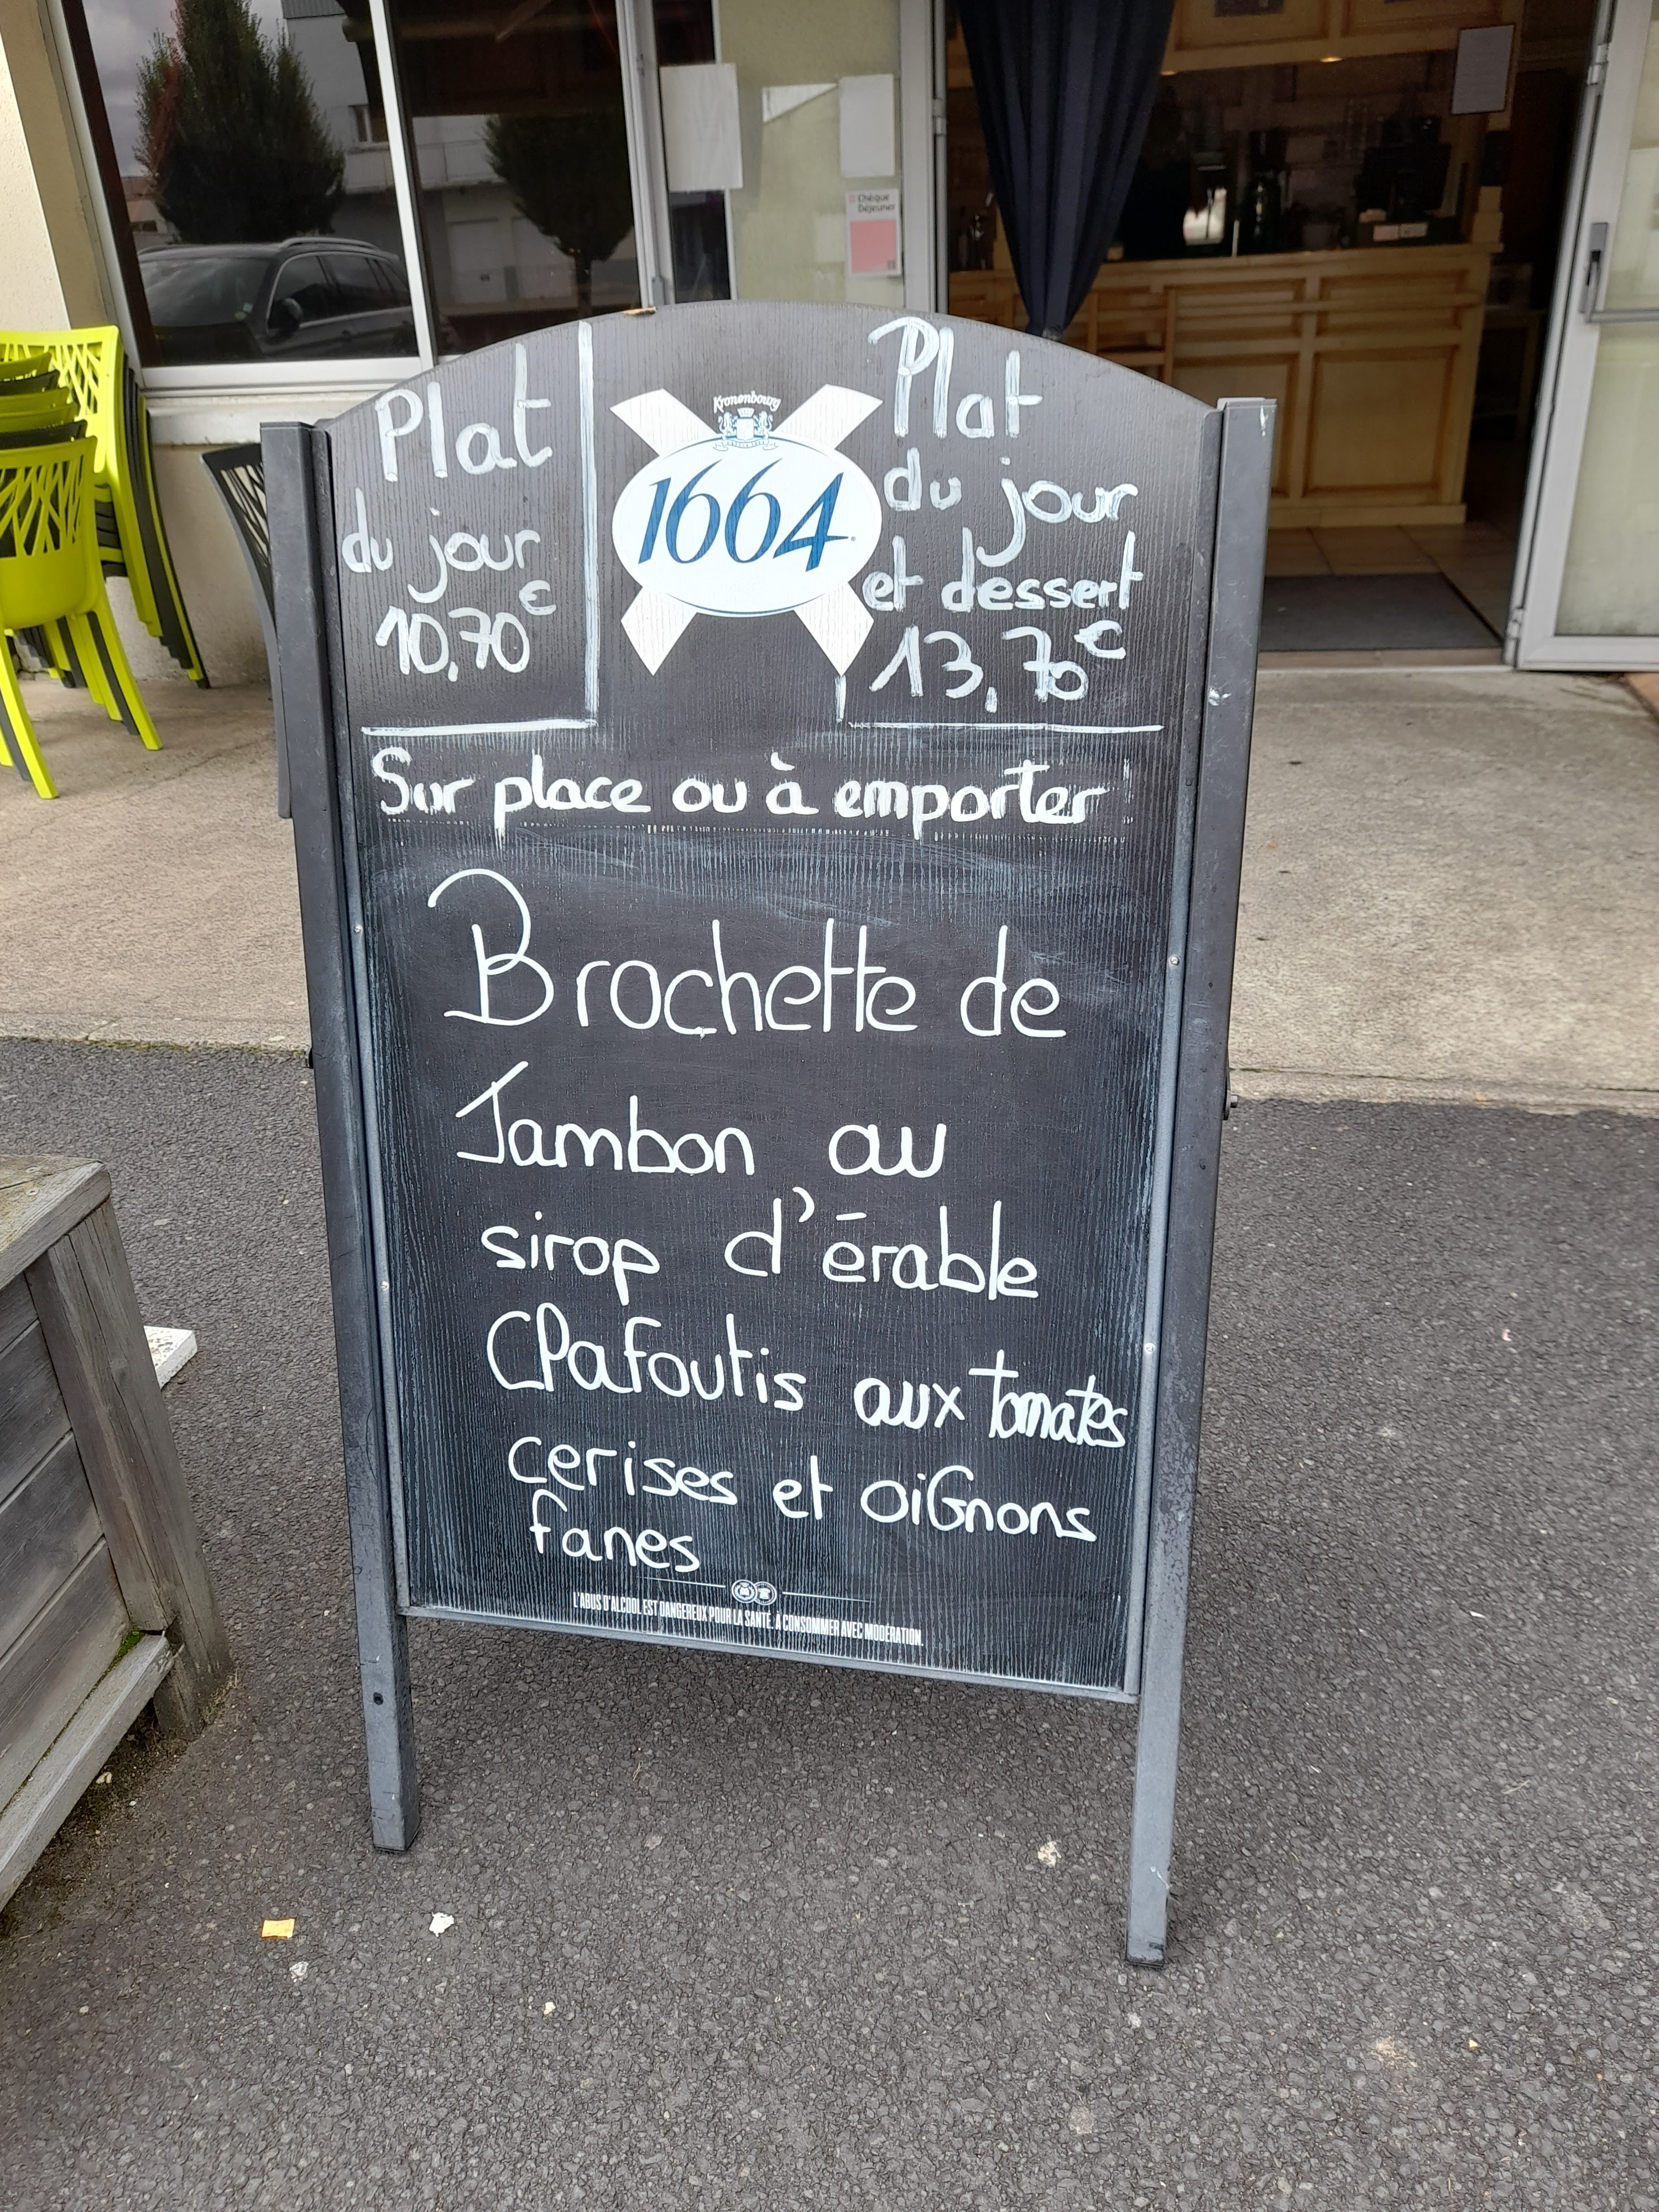 Chèque
Déjeuner
Plat
du jour
10,70€
Kronenbourg
1664
Plat
du jour
et dessert
13,70€
Sur place ou à emporter
Brochette de
Jambon au
sirop d'érable
Clafoutis aux tomates
cerises et oiGnons
fanes
L'ABUS D'ALCOOL EST DANGEREUX POUR LA SANTÉ. À CONSOMMER AVEC MODÉRATION.